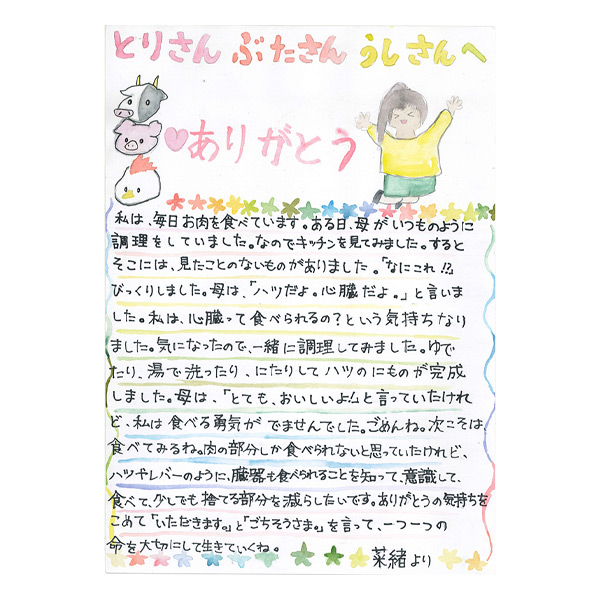 とりさん ぶたさん うしさんへ
ありがとう
私は、毎日お肉を食べています。ある日、母がいつものように
調理をしていました。なのでキッチンを見てみました。すると
そこには、見たことのないものがありました。「なにこれ!?
びっくりしました。母は、「ハツだよ。心臓だよ。」と言いま
した。私は、心臓って食べられるの?という気持ちなり
ました。気になったので、一緒に調理してみました。ゆで
たり、湯で洗ったり、にたりしてハツのにものが完成
しました。母は、「とても、おいしいよ」と言っていたけれ
ど、私は食べる勇気がでませんでした。ごめんね。次こそは、
食べてみるね。肉の部分しか食べられないと思っていたけれど、
ハツやレバーのように、臓器も食べられることを知って、意識して、
食べて、少しでも捨てる部分を減らしたいです。ありがとうの気持ちを
こめて「いただきます。」と「ごちそうさま。」を言って、一つ一つの
命を大切にして生きていくね。
菜緒より